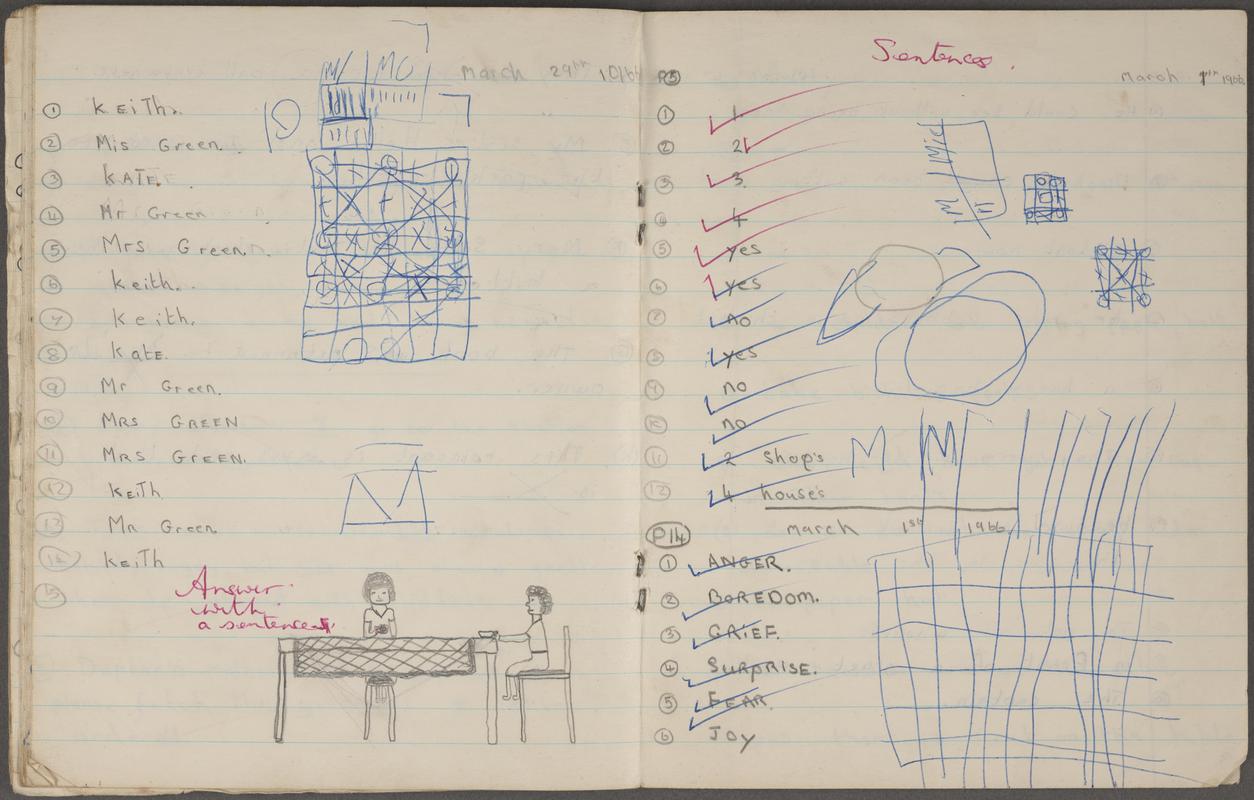 M MO
March 29th
① KEiTh.
② Mis Green.
③ KATE.
④ Mr Green
⑤ Mrs Green.
⑥ Keith.
⑦ Keith.
⑧ Kate.
⑨ Mr Green.
⑩ MRS GREEN
⑪ MRS GREEN.
⑫ KEiTh
⑬ Mr Green
⑭ KEiTh
⑮
Answer
with
a sentence.
Sentences.
March 1966
① 1.
② 2
③ 3.
④ 4
⑤ yes
⑥ yes
⑦ no
⑧ yes
⑨ no
⑩ no
⑪ 2 Shop's M M
⑫ 4 house's
P14 March 1st 1966.
① ANGER.
② BOREDOM.
③ GRiEF.
④ SURPRiSE.
⑤ FEAR.
⑥ Joy